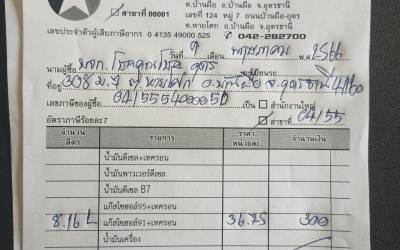 ต.บ้านผือ อ.บ้านผือ จ.อุดรธานี
☑ สาขาที่ 00001 เลขที่ 124 หมู่ 7 ถนนบ้านผือ-อุดร
ต.หายโศก อ.บ้านผือ จ.อุดรธานี
เลขประจำตัวผู้เสียภาษีอากร 0 4135 49000 525 042-282700
วันที่ 9 เดือน พฤษภาคม พ.ศ. 2566
นามผู้ซื้อ หจก. อุดร ทะเบียนรถ
ที่อยู่ 308 ม.7 ต.หายโศก อ.บ้านผือ จ.อุดรธานี 41160
เลขภาษีของผู้ซื้อ เป็น ☐ สำนักงานใหญ่
อัตราภาษีร้อยละ7 ☑ สาขาที่ 04155
จำนวนลิตร รายการ ราคาหน่วยละ จำนวนเงิน
น้ำมันดีเซล+เทครอน
น้ำมันพาวเวอร์ดีเซล
น้ำมันดีเซล B7
แก๊สโซฮอล์95+เทครอน
8.16 L แก๊สโซฮอล์91+เทครอน 36.75 300
น้ำมันเครื่อง